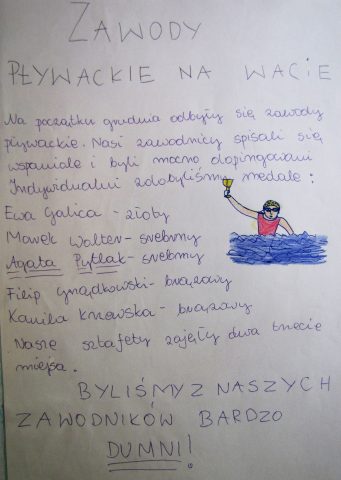 ZAWODY
PŁYWACKIE NA WACIE
Na początku grudnia odbyły się zawody
pływackie. Nasi zawodnicy spisali się
wspaniale i byli mocno dopingowani
Indywidualni zdobyliśmy medale:
Ewa Galica - złoty
Marek Wolter - srebrny
Agata Pytlak - srebrny
Filip - brązowy
Kamila - brązowy
Nasze sztafety zajęły dwa trzecie
miejsa.
BYLIŚMY Z NASZYCH
ZAWODNIKÓW BARDZO
DUMNI!